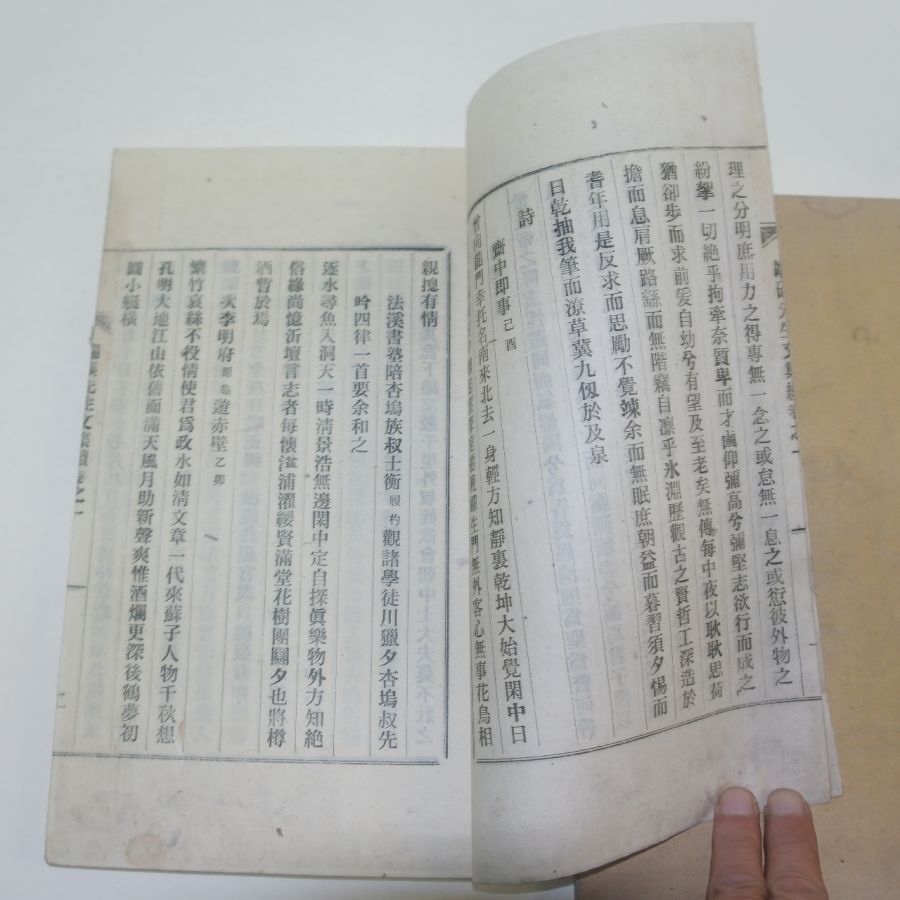 理之分明庶用力之得專無一念之或怠無一息之或愆彼外物之
紛挐一切絕乎拘牽奈質卑而才鹵仰彌高兮彌堅志欲行而成之
猶卻步而求前爰自幼兮有望及至老矣無傳每中夜以耿耿思荷
擔而息肩厥路繇而無階竊自凛乎氷淵歷觀古之賢哲工深造於
耆年用是反求而思勵不覺竦余而無眠庶朝益而暮習須夕惕而
日乾抽我筆而潦草冀九仭於及泉
詩
齋中即事 己酉
龍門幸托名南來北去一身輕方知靜裏乾坤大始覺閑中日
門無外客心無事花鳥相
親摠有情
法溪書塾陪杏塢族叔士衡 觀諸學徒川獵夕杏塢叔先
吟四律一首要余和之
逐水尋魚入洞天一時淸景浩無邊閑中定自探眞樂物外方知絶
俗緣尚憶沂壇言志者每懷湓浦濯纓賢滿堂花樹團圝夕也將樽
酒暫於焉
次李明府 遊赤壁 乙卯
繁竹哀絲不役情使君爲政水如淸文章一代來蘇子人物千秋想
孔明大地江山依舊面滿天風月助新聲爽惟酒爛更深後鶴夢初
圓小艇橫
先生文集